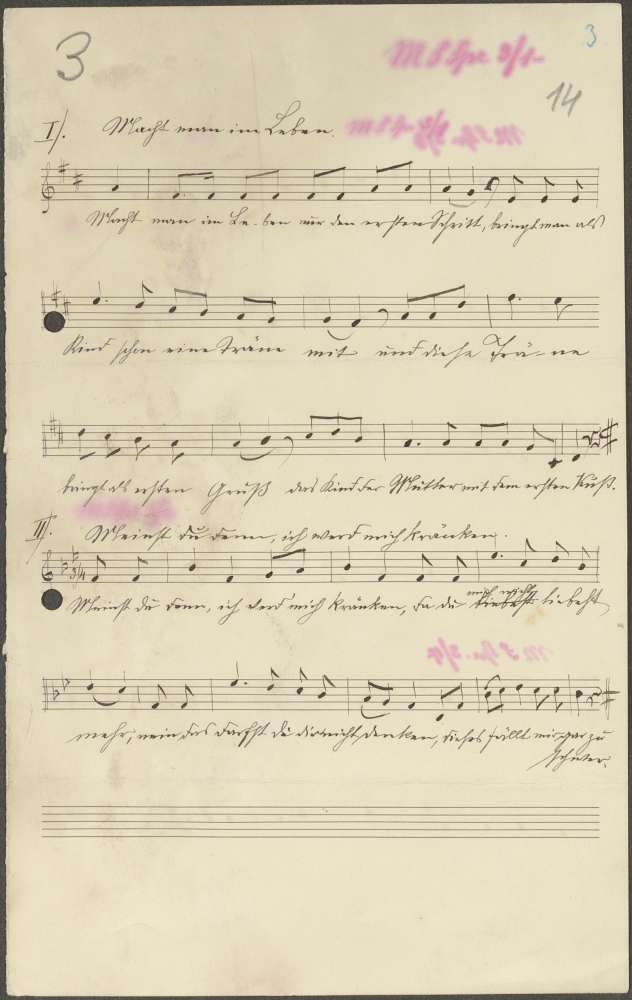 3
3
14
I. Macht man im Leben.
Macht man im Le-ben nur den ersten Schritt, bringt man als
Kind schon eine Träne mit und diese Trä-ne
bringt als ersten Gruß das Kind der Mutter mit dem ersten Kuß.
II. Meinst du denn, ich werd mich kränken.
3/4
Meinst du denn, ich werd mich kränken, da du mich nicht liebest
mehr; nein das darfst du dir nicht denken, dieses fällt mir gar zu
schwer.